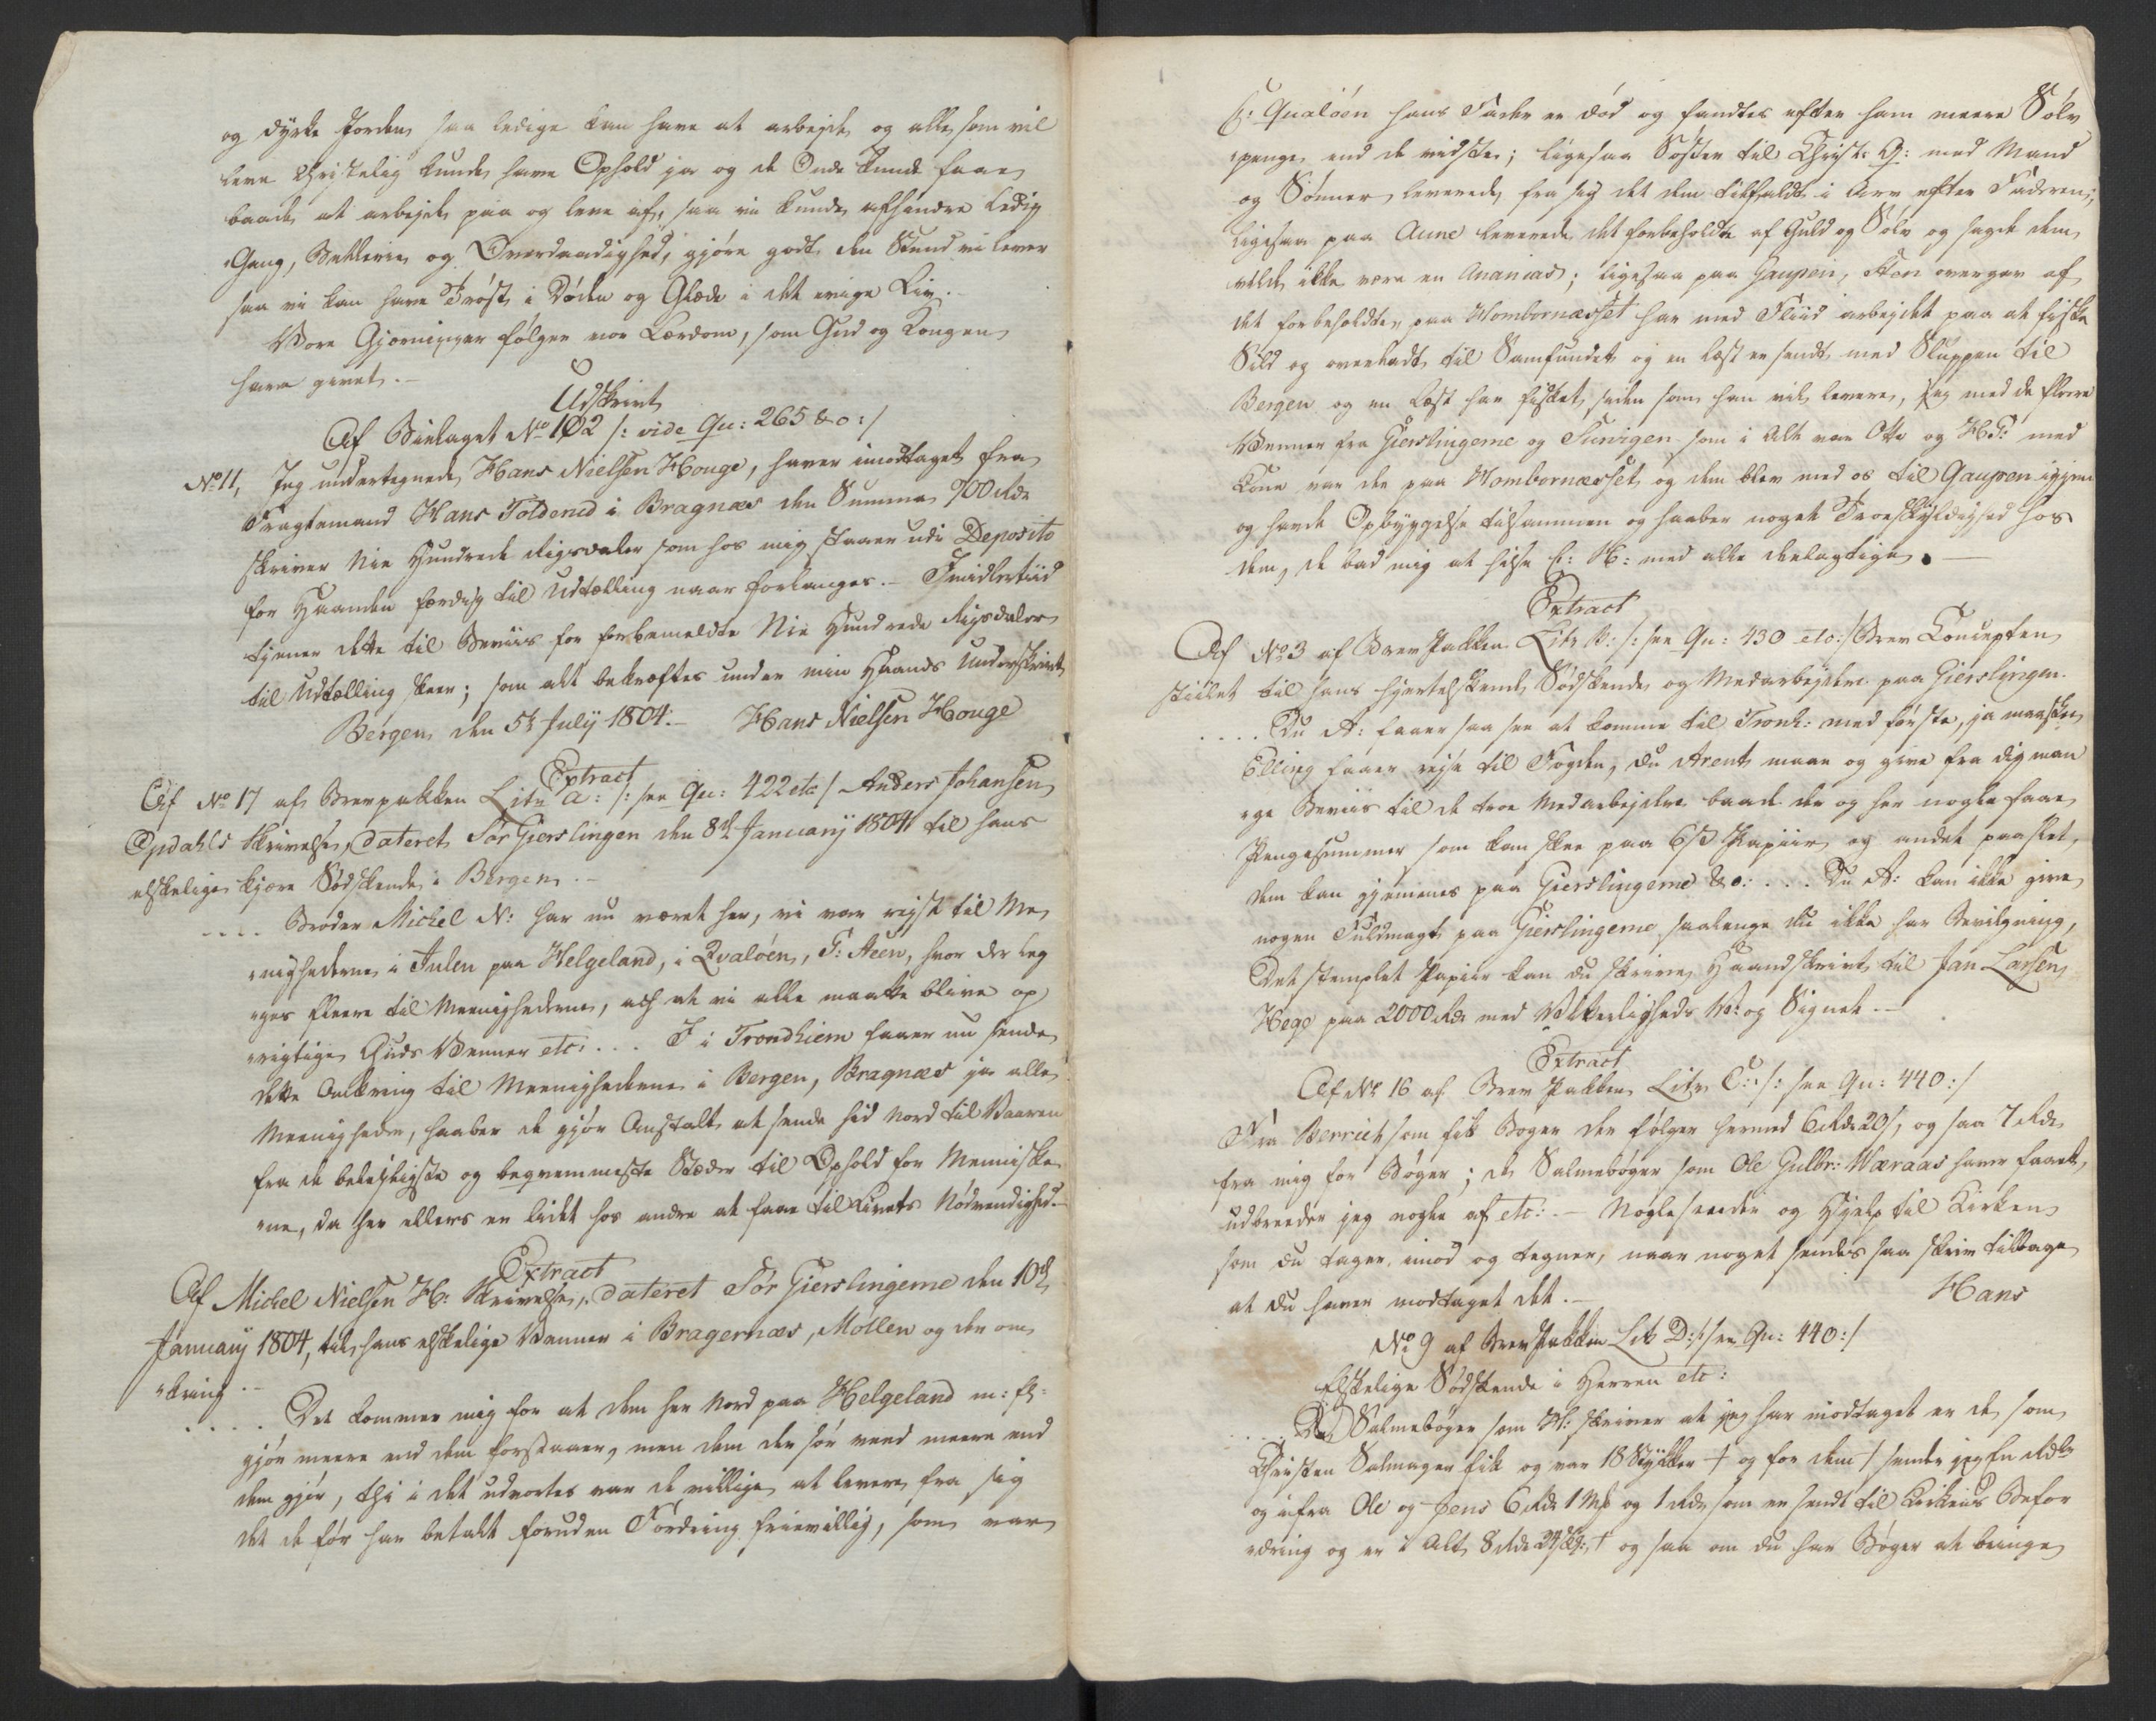 og dyrke Jorden, saa ledige kan have at arbejde og alle som vil
leve Christelig kunde have Ophold ja og de Onde kunde faae
baade at arbejde paa og leve af, saa vi kunde afhindre Ledig
Gang, Betlerie og Overdaadighed, gjøre godt den Stund vi lever
saa vi kan have Trøst i Døden og Glæde i det evige Liv.
Vore Gjerninger følger vor Lærdom, som Gud og Kongen
have givet.-
Udskrivt
Af Bielaget No 102 /: vide Qu: 265 &c:/
No 11, Jeg undertegnede Hans Nielsen Houge, haver imodtaget fra
Fragtemand Hans Toldened i Bragnæs den Summa 900 Rdr
skriver Nie Hundrede Rigsdaler som hos mig staaer udi Deposito
for Haanden færdig til Udtælling naar forlanges.- Imidlertiid
tjener dette til Beviis for forbemeldte Nie Hundrede Rigsdaler
til Udtælling skeer; som alt bekræftes under min Haands Underskrivt
Bergen den 5te July 1804.- Hans Nielsen Houge
Extract
Af No 17 af Brevpakken Litr a: /: see Qu: 422 etc/ Anders Johansen
Opdahls Skrivelse, dateret Sør Gierslingen den 8de January 1804 til hans
elskelige kjære Sødskende i Bergen.-
.... Broder Michel N: har nu været her, vi var rejst til Me
nighederne i Julen paa Helgeland, i Qvaløen, T: Aeen, hvor der leg
ges fleere til Meenighederne, ach at vi alle maatte blive op
rigtige Guds Venner etc: ... I i Trondhiem faaer nu sende
dette Omkring til Meenighederne i Bergen, Bragnæs ja alle
Meenigheder, haaber de gjør Anstalt at sende hid Nord til Vaaren
fra de belejligste og beqvemmeste Stæder til Ophold for Menniske
ne, da her ellers er lidet hos andre at faae til Livets Nødvendighed.-
Extract
Af Michel Nielsen H: Skrivelse, dateret Sør Gierslingerne den 10de
January 1804, til hans elskelige Venner i Bragernæs, Mollen og der om
kring.-
..... Det kommer mig for at dem her Nord paa Helgeland m: fl:
gjør meere end dem forstaaer, men dem der sør veed meere end
dem gjør, thi i det udvortes var de villige at levere fra sig
det de før har betalt foruden Fordring frievillig, som var
E: Qualøen hans Fader er død og fandtes efter ham meere Sølv
penge end de vidste; ligesaa Søster til Christ: G: med Mand
og Sønner leverede fra sig det dem tilfaldt i Arv efter Faderen;
ligesaa paa Aune leverede det forbeholdte af Guld og Sølv og sagde dem
vilde ikke være en Ananias; ligesaa paa Gaupen, Hon overgav af
det forbeholdte, paa Hombornæsset har med Fliid arbejdet paa at fiske
Sild og overladt til Samfundet og en Læst er sendt med Sluppen til
Bergen og en Læst har fisket siden som han vil levere, jeg med de fleere
Venner fra Gierslingerne og Turvigen som i Alt var Otte og H S: med
Kone var der paa Hombornæsset og dem blev med os til Gaupen igjen
og havde Opbyggelse tilsammen og haaber noget Troeskyldighed hos
dem, de bad mig at hilse E: N: med alle deelagtige.-
Extract
Af No 3 af Brev Pakken Litr B: /: see Qu: 430 etc:/ Brev Concepten
stiilet til hans hjertelskende Sødskende og Medarbejdere paa Gierslingen.
.... Du A: faaer saa see at komme til Tronh: med første, ja maaskee
Elling faaer rejse til Fogden, du Arent maae og give fra dig man
ge Beviis til de troe Medarbejdere baade der og her nogle faae
Pengesummer som kan skee paa 6 s Papiir og andet paa slet,
dem kan gjemmes paa Gierslingerne &c: ... Du A: kan ikke give
nogen Fuldmagt paa Gierslingerne saalenge du ikke har Bevilgning,
Det stemplet Papiir kan du skrive Haandskrivt til Jan Larsen
Hege paa 2000 Rdr med Vitterligheds W: og Signet.-
Extract
Af No 16 af Brev Pakken Litr C: /: see Qu: 440:/
Fra Berrich som fik Bøger der følger hermed 6 Rdr 20 s, og saa 7 Rdr
fra mig for Bøger; de Salmebøger som Ole Gulbr: Wæraas haver faaet,
udbreeder jeg nogle af etc:.- Nogle sender og Hjelp til Kirken
som du tager imod og tegner, naar noget sendes saa skriv tilbage
at du haver modtaget det.- Hans
No 9 af Brev Pakken Litr D: /: see Qu: 440:/
Elskelige Sødskende i Herren etc:
.... De Salmebøger som H: skriver at jeg har modtaget er de som
Christen Salmager fik og var 18 Stykker † og for dem † sender jeg En Rdlr
og ifra Ole og Jens 6 Rdr 1 Mk og 1 Rdr som er sendt til Kirkens Befor
dring og er i Alt 8 Rdr og saa om du har Bøger at bringe